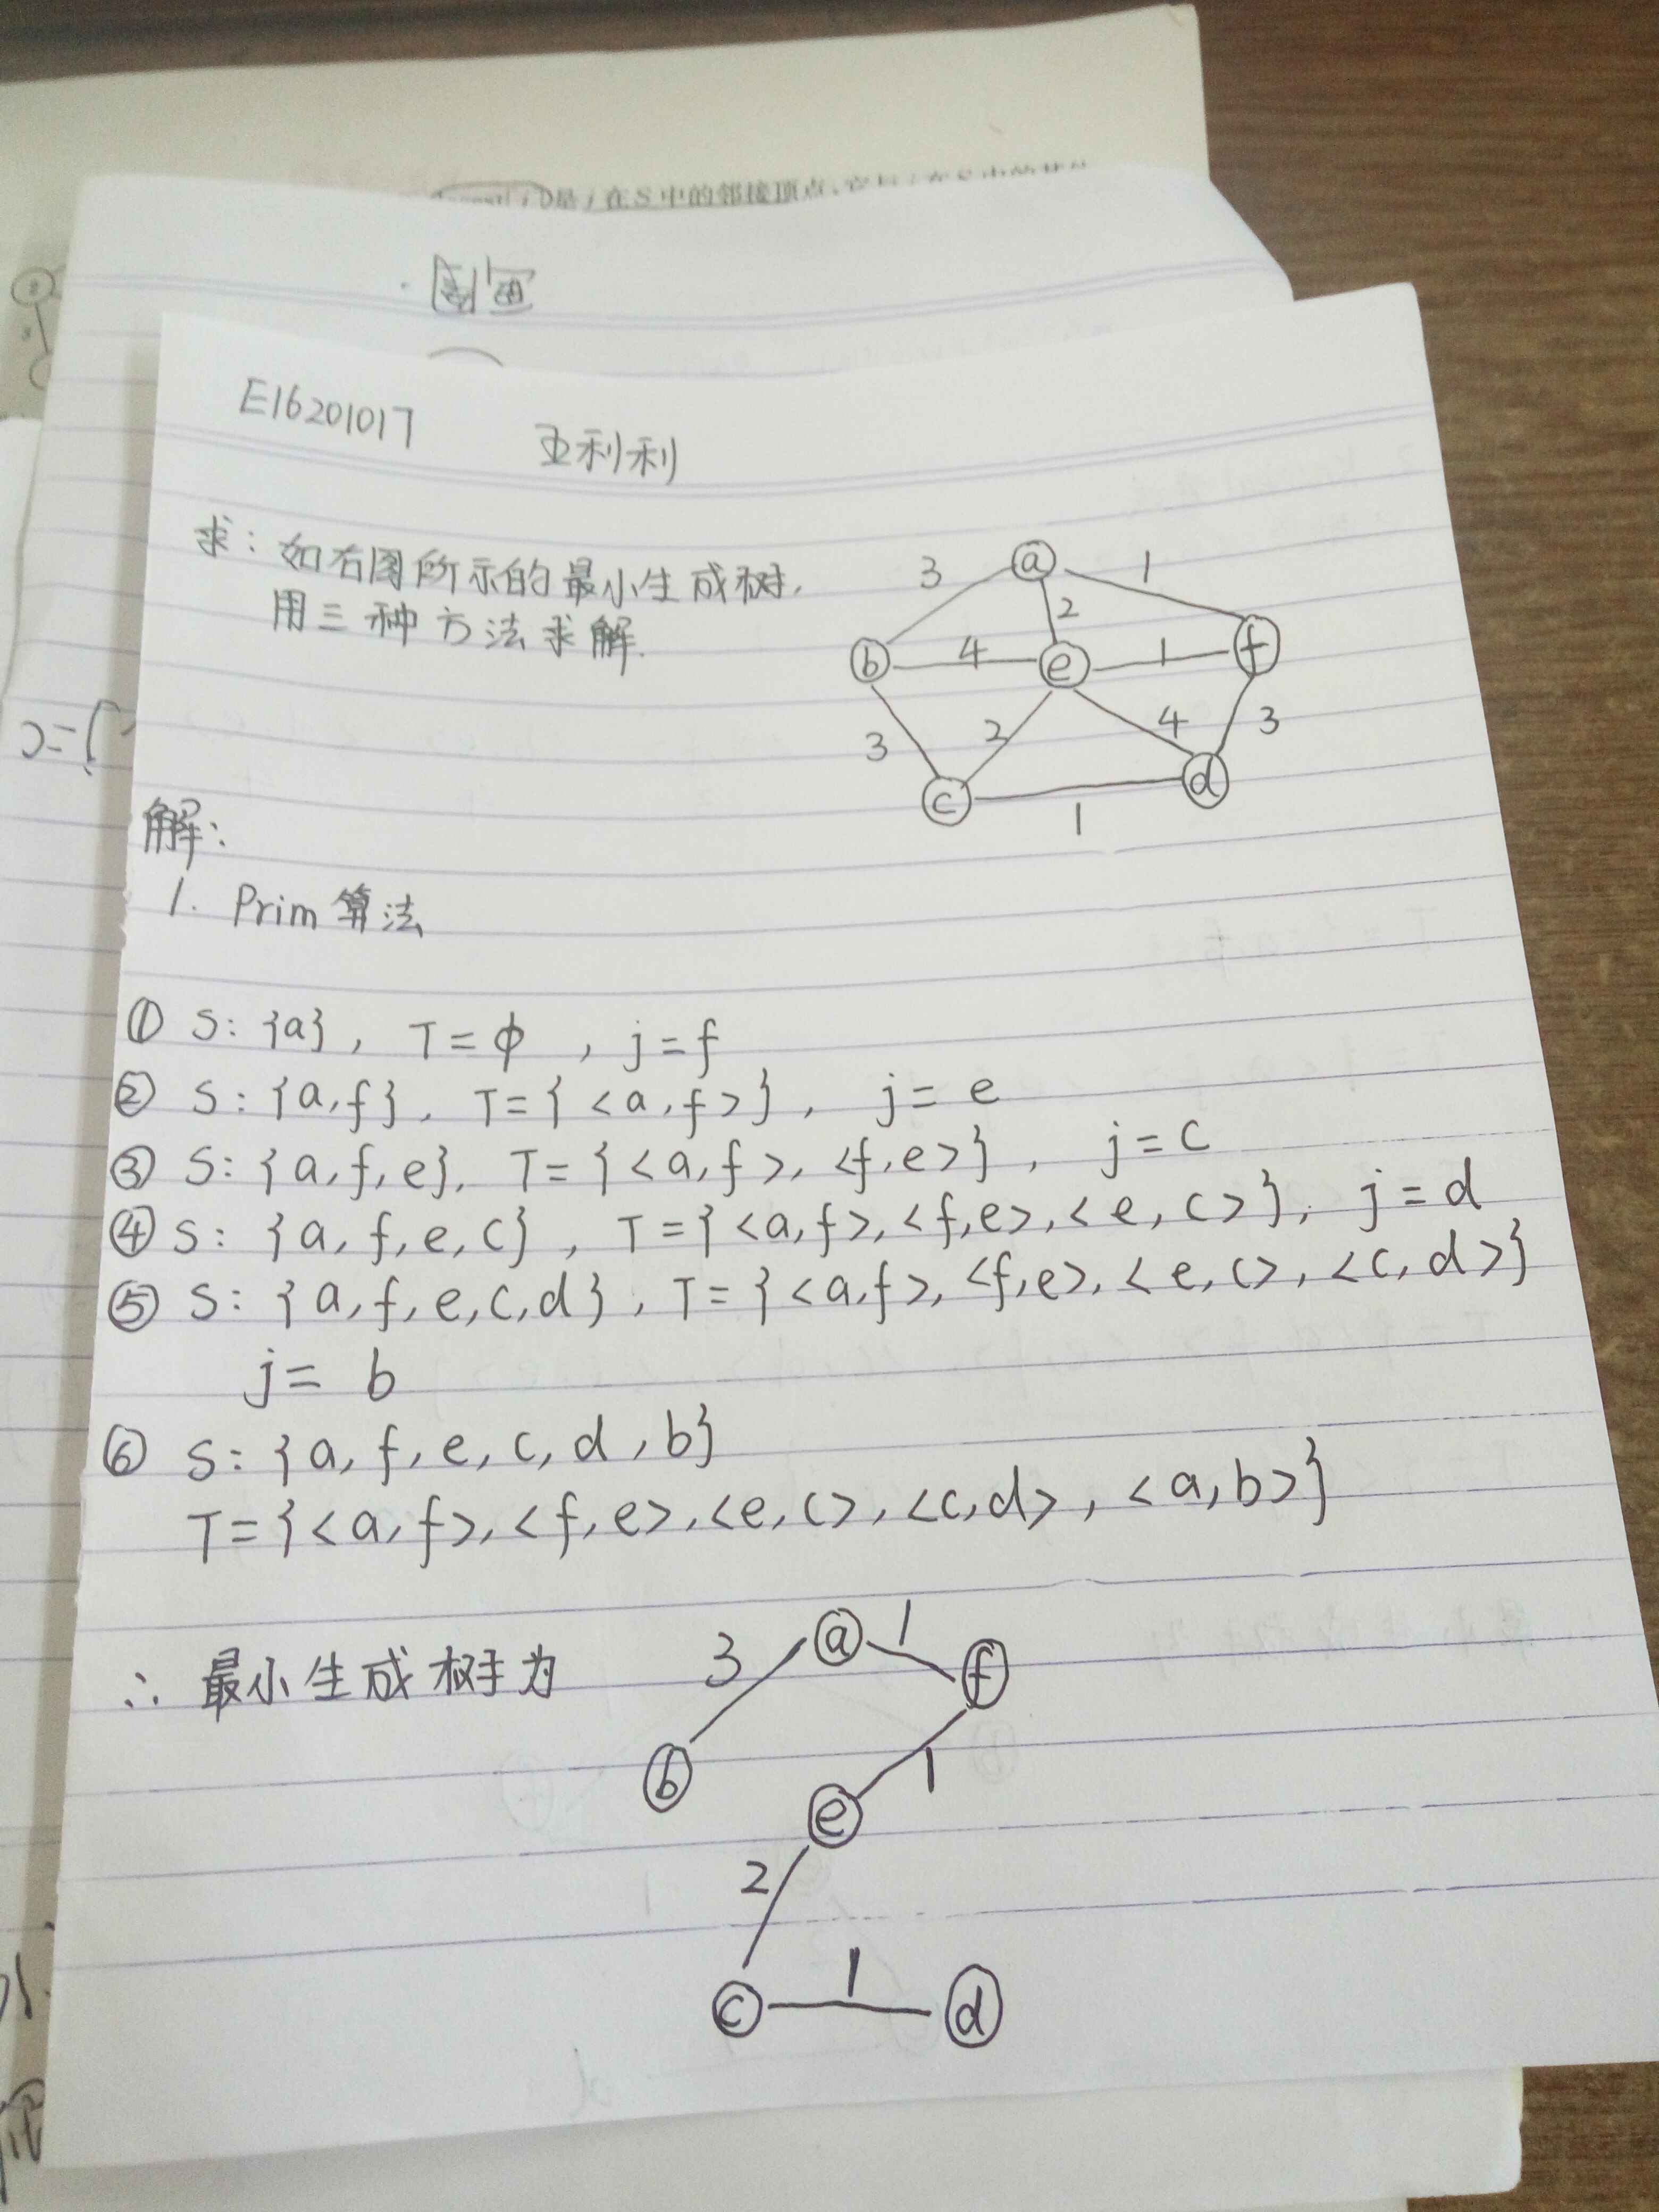 是j在S中的邻接顶点,
E16201017 亚利利
求: 如右图所示的最小生成树.
用三种方法求解.
a 3 1 2 b 4 e 1 f 3 2 4 3 c 1 d
解:
1. Prim 算法
① S: {a}, T = φ , j = f
② S: {a,f}, T={ <a,f>}, j= e
③ S: {a,f,e}, T={ <a,f>, <f,e>}, j=c
④ S: {a,f,e,c}, T={<a,f>,<f,e>,<e,c>}, j=d
⑤ S: {a,f,e,c,d}, T={<a,f>,<f,e>,<e,c>,<c,d>}
j= b
⑥ S: {a,f,e,c,d,b}
T={<a,f>,<f,e>,<e,c>,<c,d>,<a,b>}
∴ 最小生成树为
3 a 1 f
b 1
e
2
c 1 d